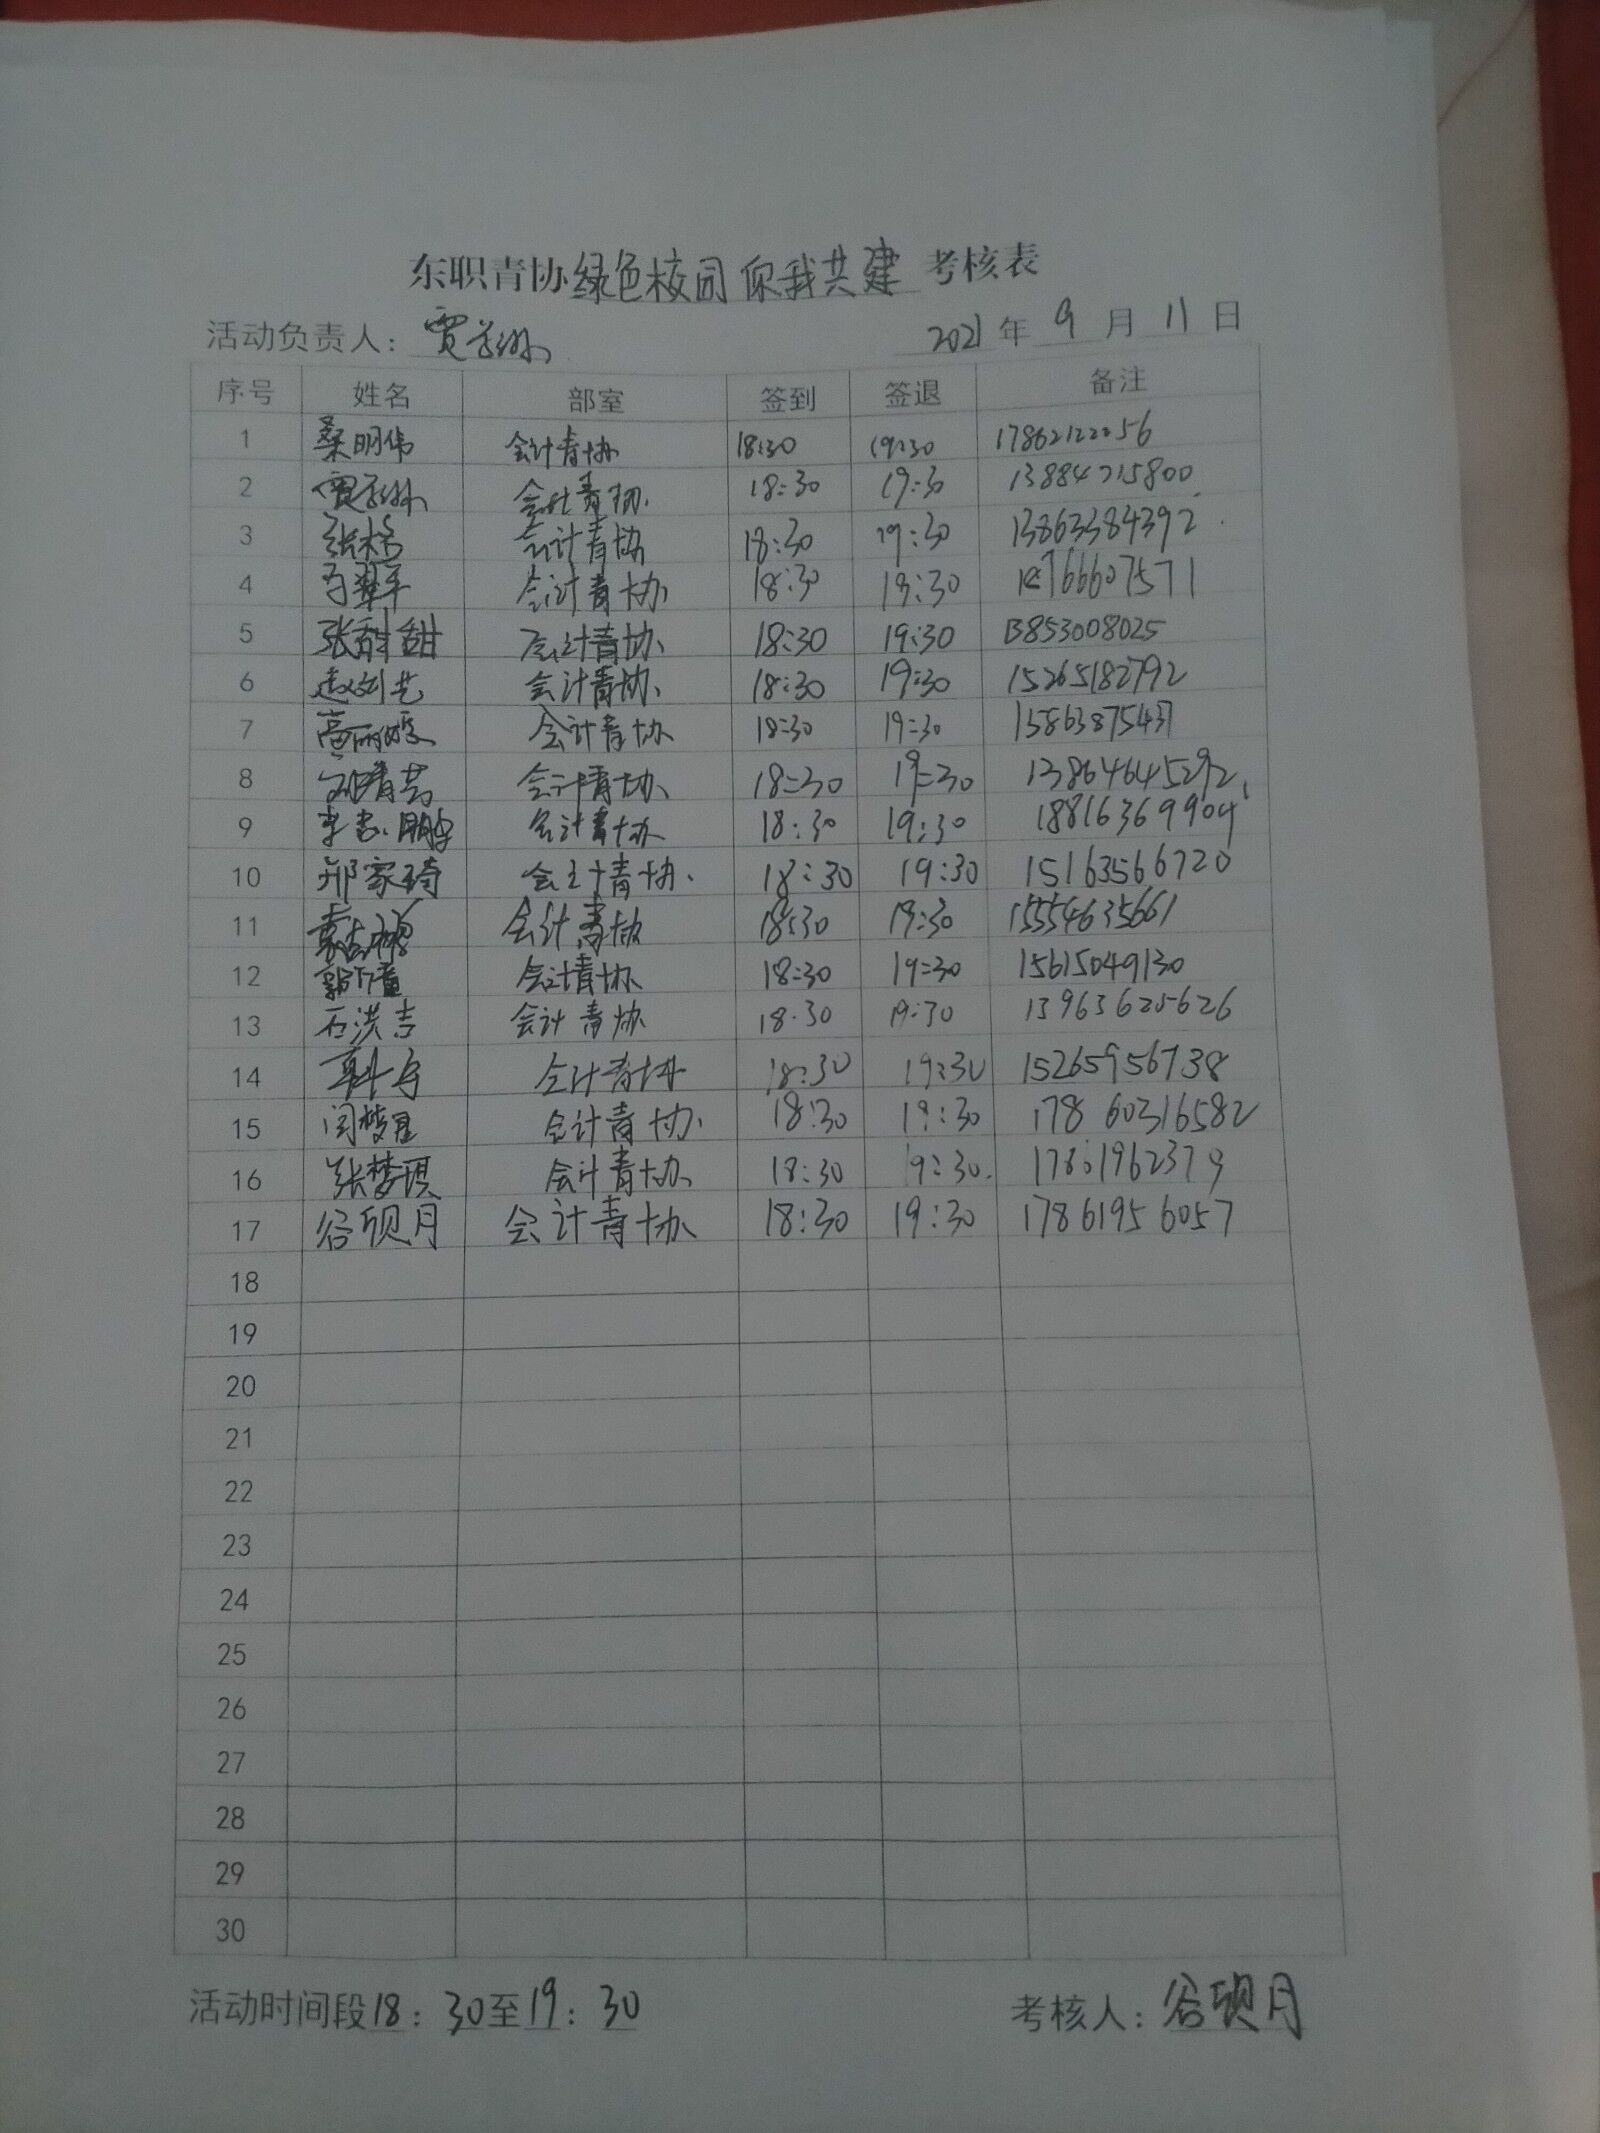 东职青协绿色校园 你我共建 考核表
活动负责人： 贾 2021 年 9 月 11 日
序号 姓名 部室 签到 签退 备注
1 桑明伟 会计青协 18:30 19:30 17862122256
2 贾 会计青协 18:30 19:30 13884715800
3 张 会计青协 18:30 19:30 13863384392
4 会计青协 18:30 19:30
5 张甜甜 会计青协 18:30 19:30 13853008025
6 赵剑艺 会计青协 18:30 19:30 15265182792
7 高丽媛 会计青协 18:30 19:30
8 会计青协 18:30 19:30 13864645292
9 会计青协 18:30 19:30 18816369904
10 邢家琦 会计青协 18:30 19:30 15163566720
11 会计青协 18:30 19:30 15554635661
12 会计青协 18:30 19:30 15615049130
13 石洪吉 会计青协 18:30 19:30 13963625626
14 会计青协 18:30 19:30 15265956738
15 闫梦星 会计青协 18:30 19:30 17860316582
16 张梦琪 会计青协 18:30 19:30 17861962379
17 谷砚月 会计青协 18:30 19:30 17861956057
18
19
20
21
22
23
24
25
26
27
28
29
30
活动时间段18：30至19：30 考核人：谷砚月